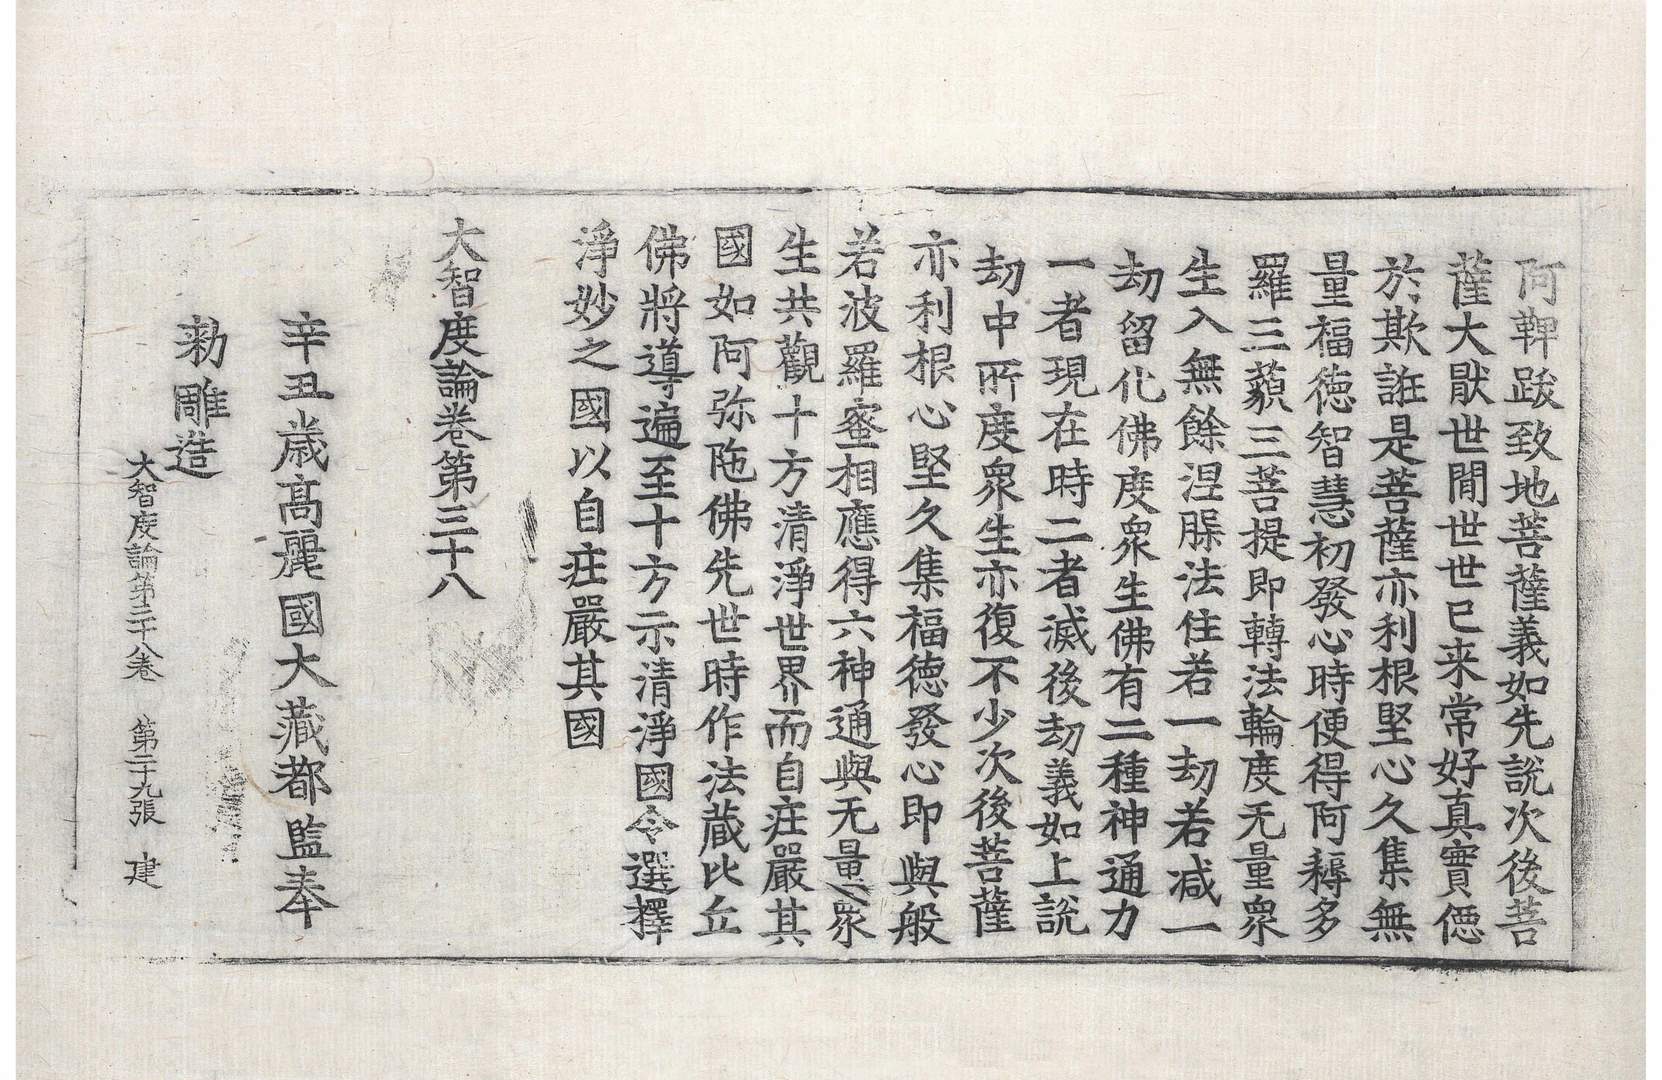 阿鞞跋致地菩薩義如先說次後菩
薩大猒世閒世世已来常好真實㥁
於欺誑是菩薩亦利根堅心久集無
量福德智慧初發心時便得阿耨多
羅三藐三菩提即轉法輪度无量眾
生入無餘涅脲法住若一劫若减一
劫留化佛度眾生佛有二種神通力
一者現在時二者滅後劫義如上說
劫中所度眾生亦復不少次後菩薩
亦利根心堅久集福德發心即與般
若波羅蜜相應得六神通與无量眾
生共觀十方清淨世界而自莊嚴其
國如阿弥陁佛先世時作法藏比丘
佛將導遍至十方示清淨國令選擇
淨妙之國以自莊嚴其國
大智度論卷第三十八
辛丑歲高麗國大藏都監奉
勅雕造
大智度論第三十八卷　第二十九張　建